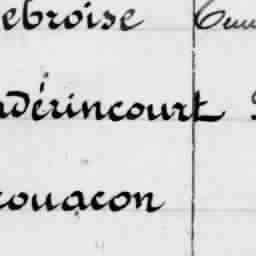 ebroise
dérincourt
ouacon